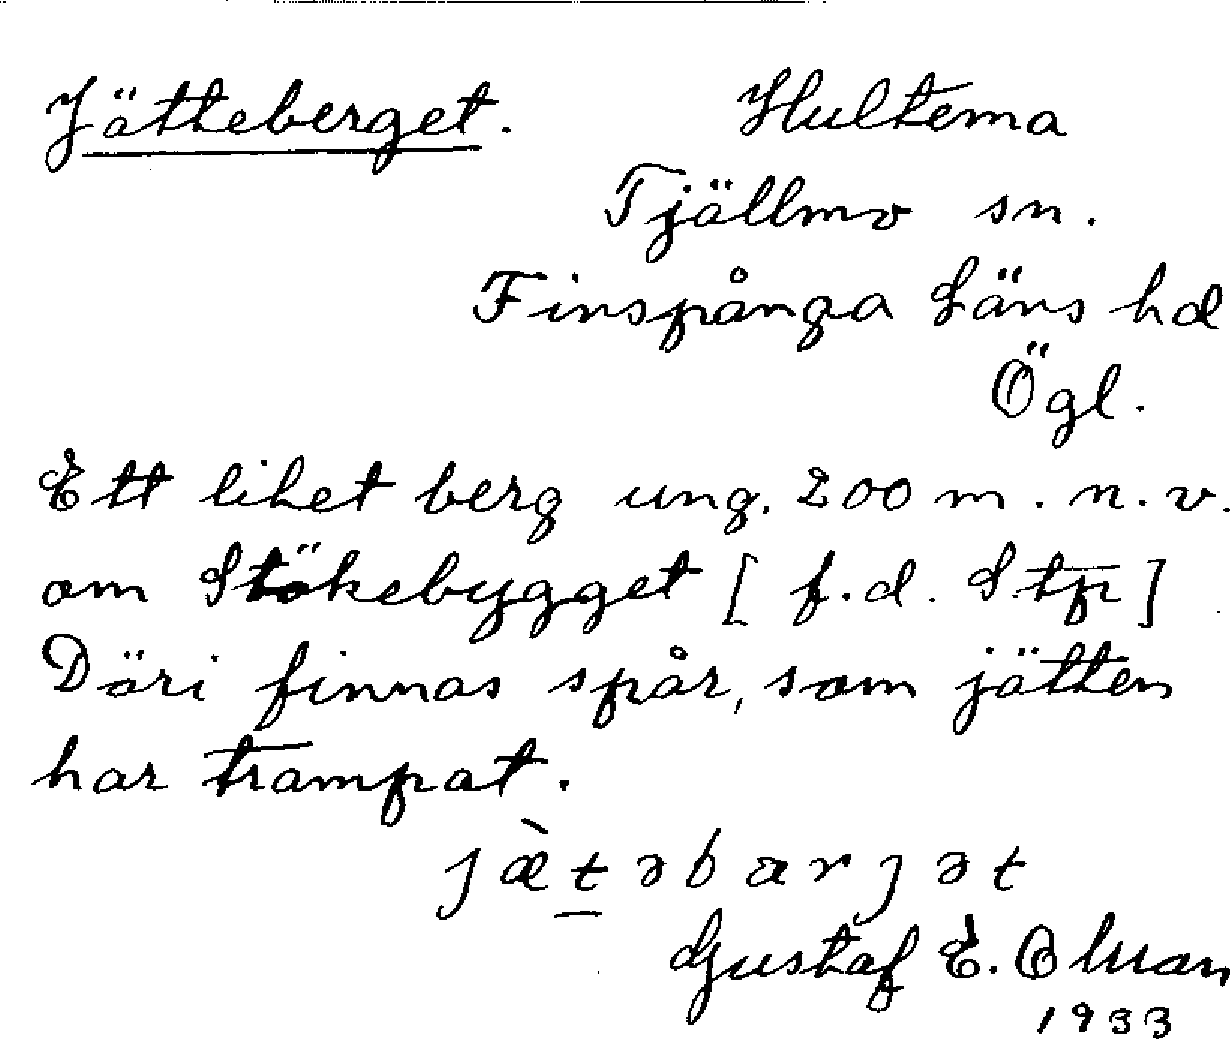 Jätteberget. Hultema
Tjällmo sn.
Finspånga Läns hd
Ögl.
Ett litet berg ung. 200 m. n. v.
om Stökebygget [ f.d. Stp ]
Däri finnas spår, som jätten
har trampat.
jæ̀t̲əbarjət
Gustaf E.
1933